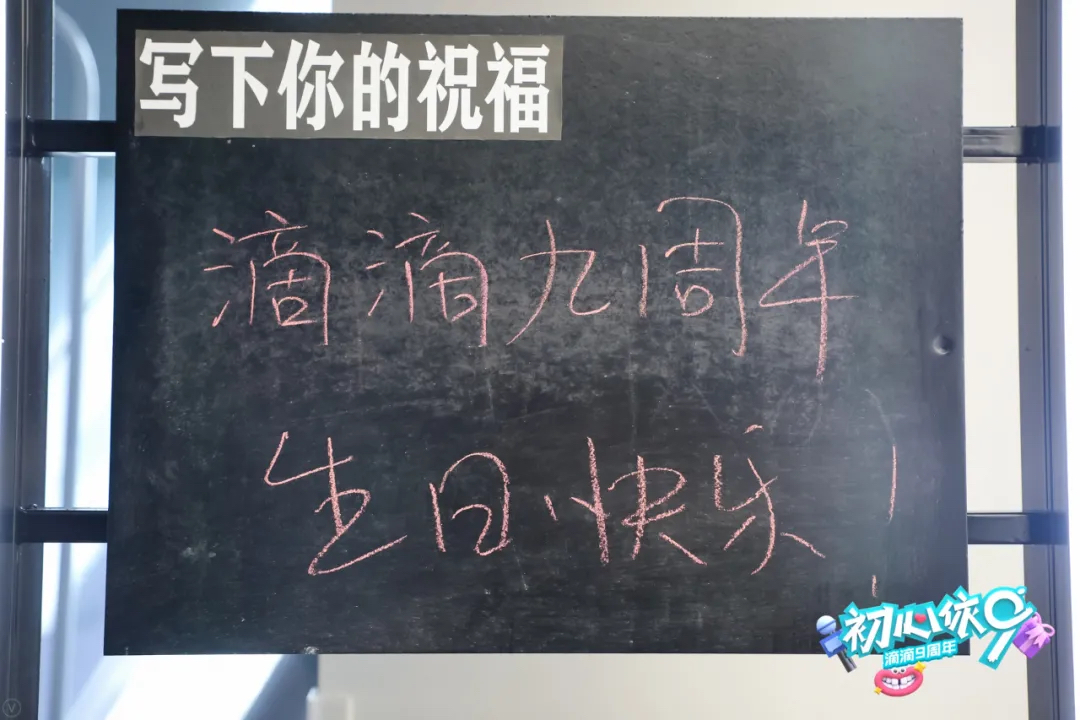 写下你的祝福
滴滴九周年
生日快乐!
初心依9
滴滴9周年